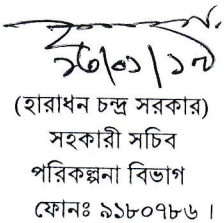 ১৬/০১/১৭
(হারাধন চন্দ্র সরকার)
সহকারী সচিব
পরিকল্পনা বিভাগ
ফোনঃ ৯১৮০৭৮৬ ।